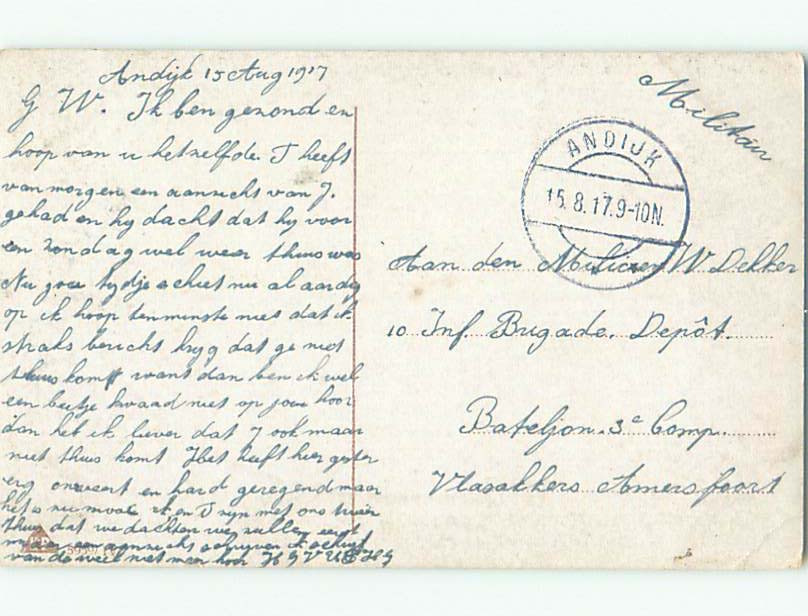 Andijk 15 Aug 1917
G W. Ik ben gezond en
hoop van u hetzelfde. T heeft
van morgen een aanzicht van J.
gehad en hij dacht dat hij voor
een zondag wel weer thuis was
Nu jou tydje schiet nu al aardig
op ik hoop tenminste niet dat ik
straks bericht kryg dat ge niet
thuis komt want dan ben ik wel
een beetje kwaad niet op jou hoor
dan heb ik liever dat J ook maar
niet thuis komt Het heeft hier gister
erg onweert en hard geregend maar
het is nu mooi ik en T zyn met ons twien
thuis dat we dachten we zullen eerst
een aanzicht schryven ik schryf
van de week niet meer hoor H G V U H G
Militair
ANDIJK
15.8.17.9-10N.
Aan den Milicien W Dekker
10 Inf. Brigade. Depôt.
Bateljon. 3e Comp.
Vlasakkers Amersfoort